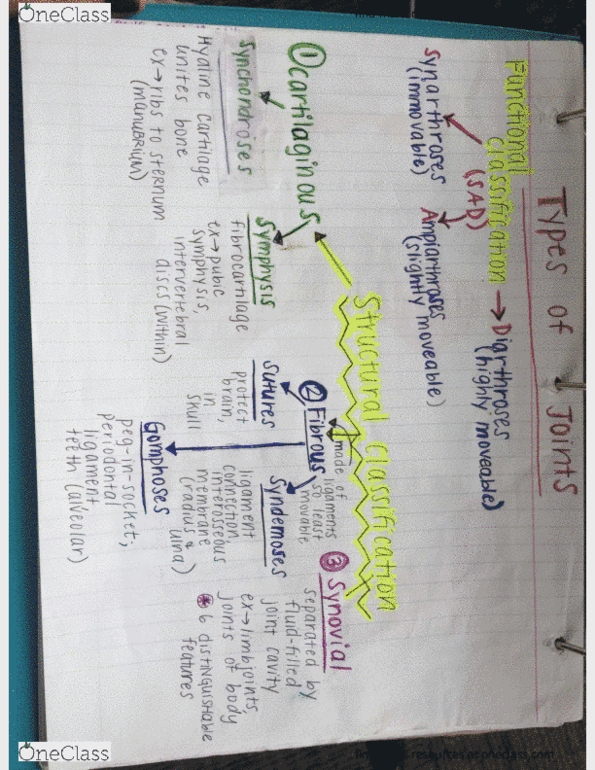 OneClass
Types of Joints
Functional
classification
(SAD)
→ Diarthroses
(highly moveable)
Synarthroses
(immovable)
Ampiarthroses
(slightly moveable)
Structural classification
① Cartilaginous
Synchondroses
Hyaline cartilage
unites bone
ex→ribs to sternum
(manubrium)
Symphysis
fibrocartilage
ex→pubic
symphysis,
intervertebral
discs (within)
② Fibrous
made of
ligaments
so least
movable
Sutures
protect
brain,
in
skull
Gomphoses
peg-in-socket;
periodontal
ligament
teeth (alveolar)
Syndemoses
ligament
connection,
interosseous
membrane
(radius &
ulna)
③ Synovial
separated by
fluid-filled
joint cavity
ex→limbjoints,
joints of body
* 6 distinguishable
features
OneClass